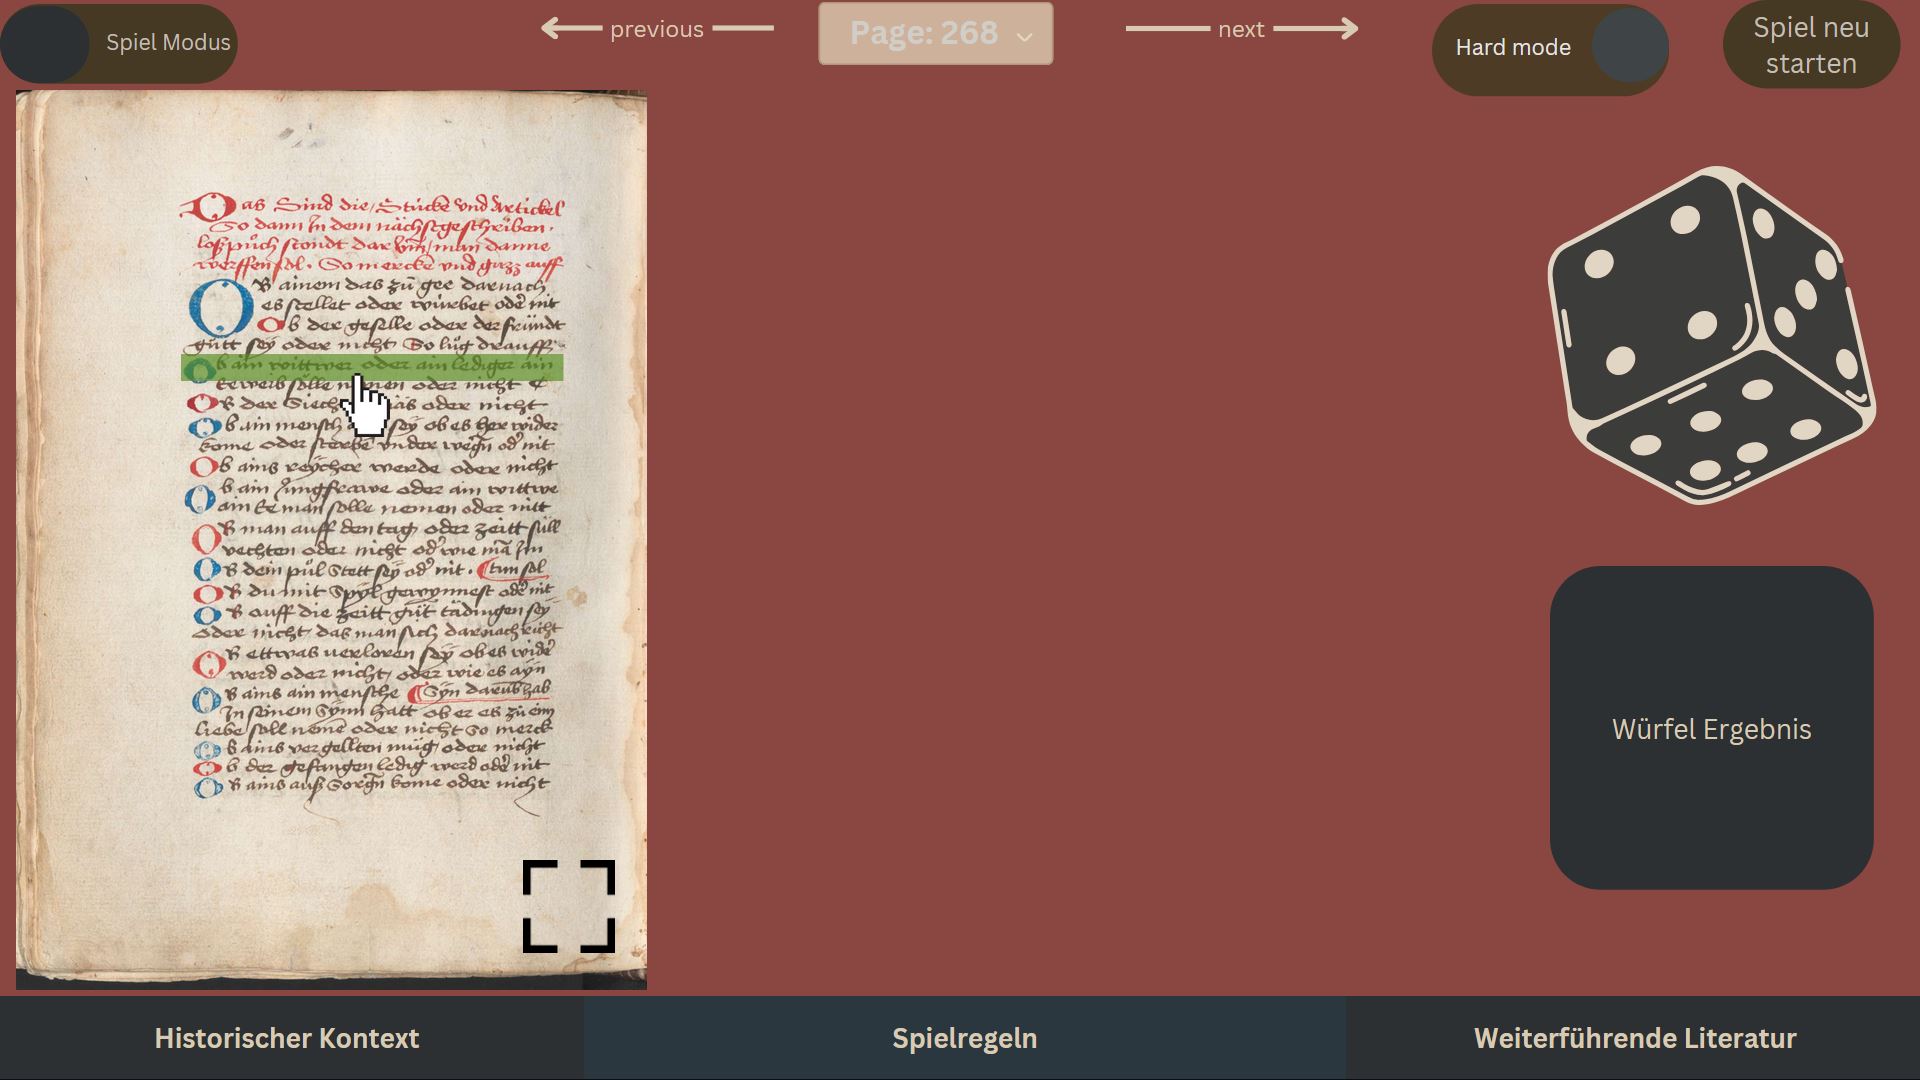 Spiel Modus
previous
Page: 268
next
Hard mode
Spiel neu
starten
Das Sind die Stucke vnd Artickel
So dann In dem nächstgeschriben
loßpůch stondt dar vm̄ man danne
werffen sol. So mercke vnd gar auff
OB ainem das zů gee darnach
es stellet oder wurbet oder nit
Ob der geselle oder der fründt
gůtt sey oder nicht So lůg drauff
Ob ain wittwer oder ain lediger ain
Eeweib sölle nemen oder nicht
OB der Siech oder nicht
Ob ain mensch sey ob es her wider
kome oder sterbe vnder wegn od nit
Ob ains reycher werde oder nicht
Ob ain Jungfrawe oder ain wittwe
ain Ee man solle nemen oder nitt
OB man auff den tag oder zeitt süll
vechten oder nicht od wie mā Im
OB dem pul Stett sey od nit. tun sol
OB du mit Spyl gewynnest oder nit
OB auff die zeitt gůt tädingen sey
oder nicht das man sich darnach richt
OB ettwas verloren sey ob es wider
werd oder nicht oder wie es ayn
OB ains ain mensche Syn darub hab
In seinem Synn hatt ob er es zů eim
liebe soll neme oder nicht So merck
Ob ains vergellten müg oder nicht
Ob der gefangen ledig werd oder nit
OB ains auß Sorgn kome oder nicht
Würfel Ergebnis
Historischer Kontext
Spielregeln
Weiterführende Literatur